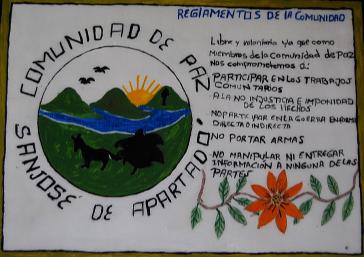 COMUNIDAD DE PAZ
SANJOSÉ DE APARTADO.
REGLAMENTOS DE LA COMUNIDAD
Libre y voluntaria ya que como
Miembros de la Comunidad de Paz
nos comprometemos a:
PARTICIPAR EN LOS TRABAJOS
COMUNITARIOS
A LA NO INJUSTICIA E IMPONIDAD
DE LOS HECHOS
NO PARTICIPAR EN LA GUERRA EN FORMA
DIRECTA O INDIRECTA
NO PORTAR ARMAS
NO MANIPULAR NI ENTREGAR
INFORMACION A NINGUNA DE LAS
PARTES